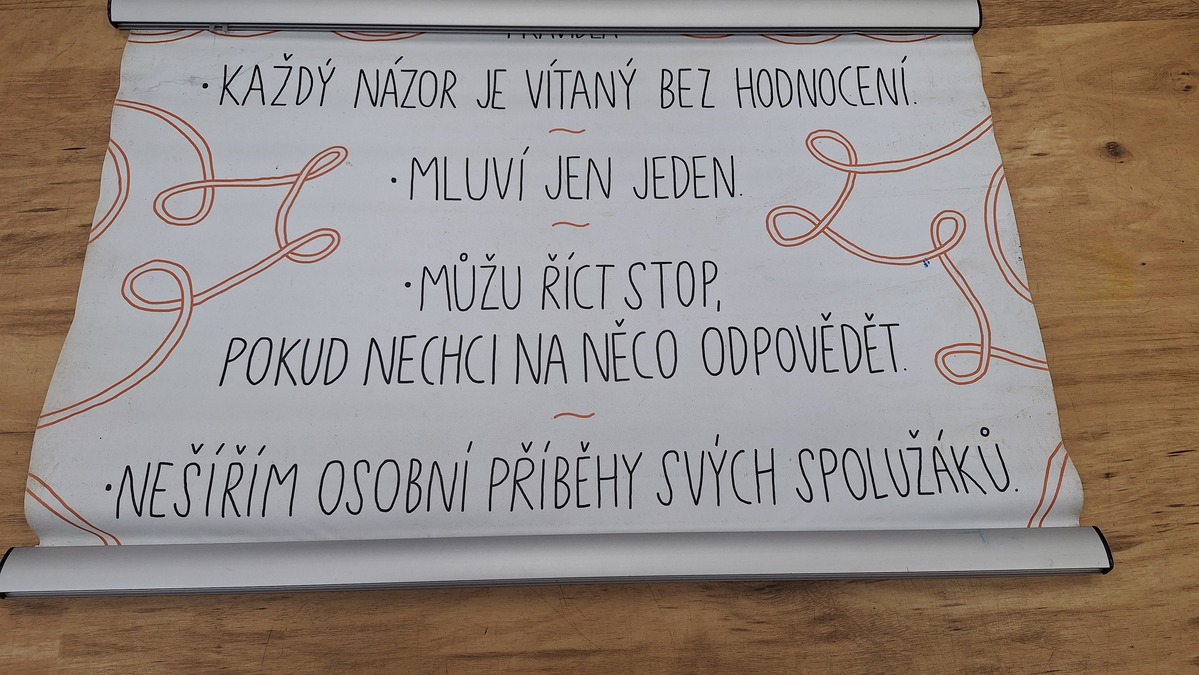 PRAVIDLA
· KAŽDÝ NÁZOR JE VÍTANÝ BEZ HODNOCENÍ.
· MLUVÍ JEN JEDEN.
· MŮŽU ŘÍCT STOP,
POKUD NECHCI NA NĚCO ODPOVĚDĚT.
· NEŠÍŘÍM OSOBNÍ PŘÍBĚHY SVÝCH SPOLUŽÁKŮ.